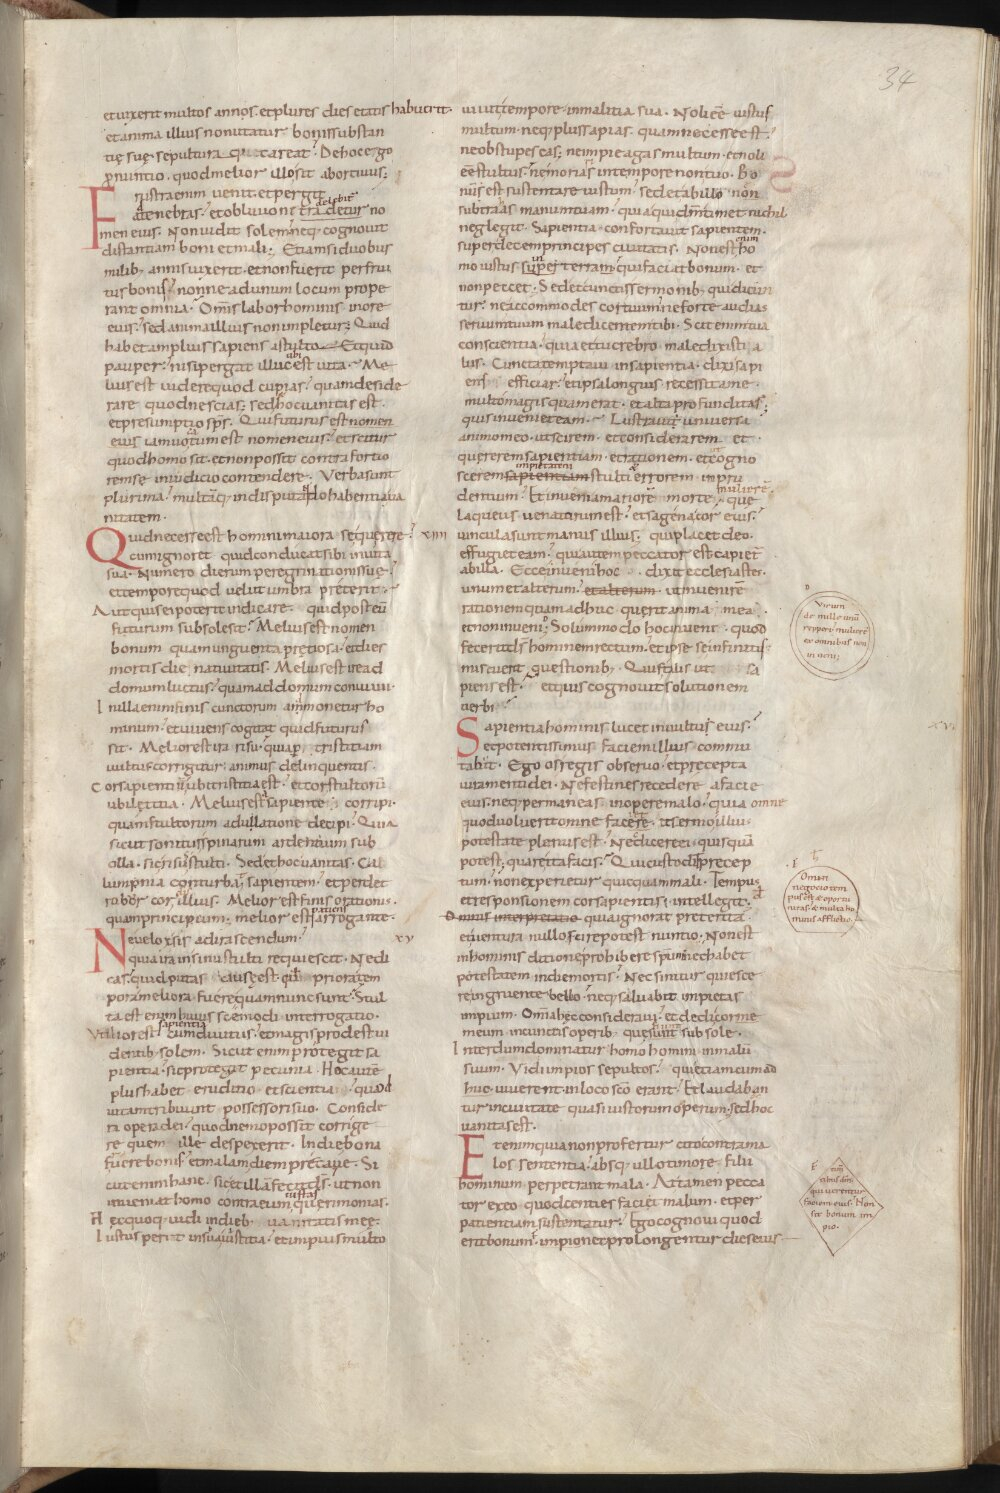 34
et uixerit multos annos. et plures dies etatis habuerit.
et anima illius non utatur bonis substan
tię suę. sepultura que careat. De hoc ergo
pronuntio. quod melior illo sit abortiuus.
Frustra enim uenit. et pergit
ad tenebras. et obliuione delebitur no
men eius. Non uidit solem. neq; cognouit
distantiam boni et mali. Etiam si duobus
milib; annis uixerit. et non fuerit perfrui
tus bonis. nonne ad unum locum prope
rant omnia. Omīs labor hominis in ore
eius. sed anima illius non impletur. Quid
habet amplius sapiens a stulto. Et quid
pauper. nisi pergat illuc ubi est uita. Me
lius est uidere quod cupias. quam deside
rare quod nescias. sed & hoc uanitas est.
et presumptio sp̄s. Qui futurus est
eius iam uocatum est nomen eius. et scitur
quod homo sit. et non possit contra fortio
rem se in iudicio contendere. Verba sunt
plurima. multaq; in disputando habentia ua
nitatem.
Quid necesse est homini maiora se querere. XIIII
cum ignoret quid conducat sibi in uita
sua. Numero dierum peregrinationis sue.
et tempore quod uelut umbra preterit.
Aut quis ei poterit indicare. quid post eū
futurum sub sole sit. Melius est nomen
bonum quam unguenta pretiosa. et dies
mortis die natiuitatis. Melius est ire ad
domum luctus. quam ad domum conuiuii.
In illa enim finis cunctorum ammonetur ho
minum. et uiuens cogitat quid futurus
sit. Melior est ira risu. quia per tristitiam
uultus corrigitur animus delinquentis.
Cor sapientium ubi tristitia est. et cor stultorū
ubi letitia. Melius est a sapiente corripi.
quam stultorum adulatione decipi. Quia
sicut sonitus spinarum ardentium sub
olla. sic risus stulti. Sed et hoc uanitas. Cal
lumpnia conturbat sapientem. et perdet
robor cordis illius. Melior est finis orationis.
quam principium. melior est patiens arrogante.
Ne uelox sis ad irascendum. XV
quia ira in sinu stulti requiescit. Ne di
cas. quid putas causę est. qd̄ priora tem
pora meliora fuere quam nunc sunt. Stul
ta est enim huiuscemodi interrogatio.
Vtilior est sapientia cum diuitiis. et magis prodest ui
dentib; solem. Sicut enim protegit sa
pientia. sic protegit pecunia. Hoc autē
plus habet eruditio et scientia. quod
uitam tribuunt possessori suo. Conside
ra opera dei. quod nemo possit corrige
re quem ille despexerit. In die bona
fruere bonis. et malam diem precaue. Si
cut enim hanc. sic et illā fecit d̄s. ut non
inueniat homo contra eum iustas querimonias.
Hęc quoq; uidi in dieb; uanitatis meę.
Iustus perit in sua iustitia. et impius multo
uiuit tempore in malitia sua. Noli eē iustus
multum. neq; plus sapias quam necesse est.
ne obstupescas. ne impie agas multum. et noli
eē stultus. ne moriaris in tempore non tuo. Bo
num est sustentare iustum. sed et ab illo non
subtrahas manum tuam. quia qui dm̄ timet nichil
neglegit. Sapientia confortauit sapientem.
super decem principes ciuitatis. Non est enim ho
mo iustus in terra. qui faciat bonum. et
non peccet. Sed et cunctis sermonib; qui dicun
tur. ne accommodes cor tuum. ne forte audias
seruum tuum maledicentem tibi. Scit enim tua
conscientia. quia et tu crebro maledixisti a
liis. Cuncta temptaui in sapientia. dixi sapi
ens efficiar. et ipsa longius recessit a me.
multo magis quam erat. et alta profunditas.
quis inueniet eam. Lustraui uniuersa
animo meo. ut scirem. et considerarem et
quererem sapientiam. et rationem. et ut cogno
scerem impietatem stulti & errorem inpru
dentium. Et inueni amariorē morte mulierē. que
laqueus uenatorum est. et sagena cor eius.
uincula sunt manus illius. qui placet deo
effugiet eam. qui autem peccator est capiet̄
ab illa. Ecce inueni hoc dixit ecclesiastes.
unum et alterum. ut inuenirē
rationem quam adhuc querit anima mea.
et non inueni. Solummodo hoc inueni. quod
fecerit d̄s hominem rectum. et ipse se infinitis
miscuerit questionib;. Quis talis ut sa
piens est. et quis cognouit solutionem
uerbi.
Sapientia hominis lucet in uultu eius. XVI
et potentissimus faciem illius commu
tabit. Ego os regis obseruo. et precepta
iuramenti dei. Ne festines recedere a facie
eius. neq; permaneas in opere malo. quia omne
quod uoluerit facit. et sermo illius
potestate plenus est. Nec dicere ei quisquā
potest. quare ita facis. Qui custodit precep
tum. non experietur quicquam mali. Tempus
et responsionem cor sapientis intellegit.
quia ignorat preterita.
et uentura nullo scire potest nuntio. Non est
in hominis dicione prohibere spm̄. nec habet
potestatem in die mortis. Nec sinitur quiesce
re ingruente bello. neq; saluabit impietas
impium. Omīa hec consideraui. et dedi cor me
um in cunctis operib; que fiunt sub sole.
Interdum dominatur homo homini in malū
suum. Vidi impios sepultos. qui etiam cum ad
huc uiuerent in loco sc̄o erant. Et laudaban
tur in ciuitate quasi iustorum operum. sed & hoc
uanitas est.
Etenim quia non profertur cito contra ma
los sententia. absq; ullo timore filii
hominum perpetrant mala. Attamen pecca
tor ex eo quod centies facit malum. et per
patientiam sustentatur. Ego cognoui quod
erit bonum. Non impio nec prolongentur dies eius
Virum
de mille unū
repperi mulierē
ex omnibus non
inueni;
Omni
negocio tem
pus est & oportu
nitas. & multa ho
minis afflictio.
timen
tibus dm̄
qui uerentur
faciem eius. Non
sit bonum im
pio.